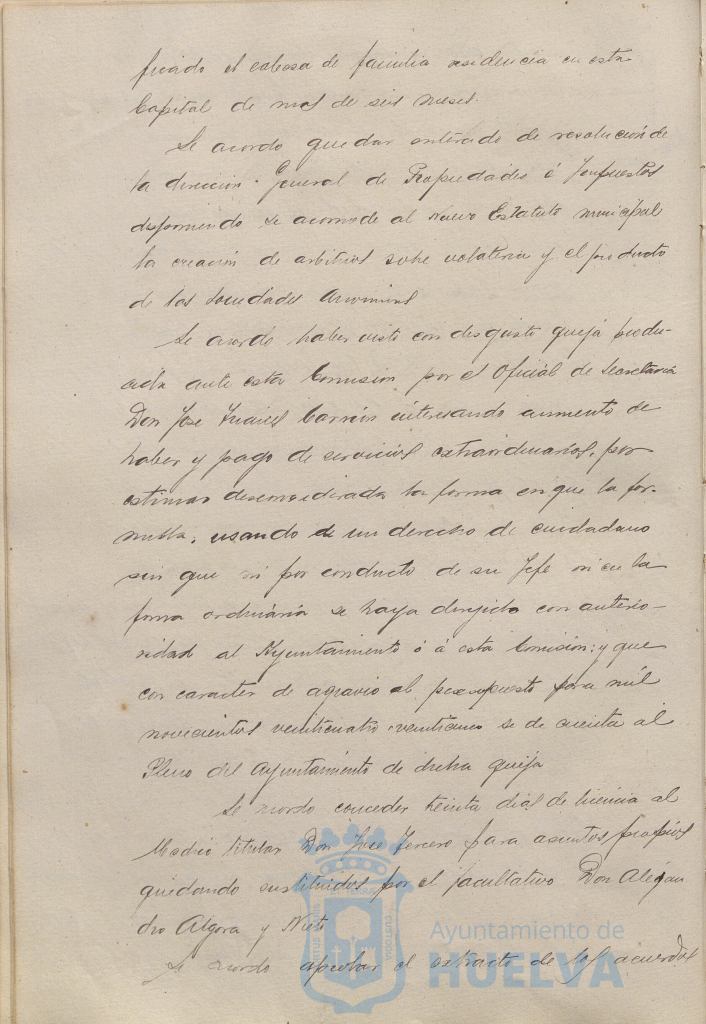 ficado el cabeza de familia residencia en esta
Capital de mas de seis meses.
Se acordo quedar enterado de resolucion de
la direccion General de Propiedades é Impuestos
disponiendo se acomode al Nuevo Estatuto municipal
la creación de arbitrios sobre volateria y el producto
de las Sociedades Anonimas
Se acordo haber visto con disgusto queja produ-
cida ante esta Comision por el Oficial de Secretaria
Don Jose Carrión interesando aumento de
haber y pago de servicios extraordinarios, por
estimar desconsiderada la forma en que la for-
mula, usando de un derecho de ciudadano
sin que ni por conducto de su Jefe ni en la
forma ordinaria se haya dirijido con anterio-
ridad al Ayuntamiento ó á esta Comisión; y que
con caracter de agravio al presupuesto para mil
novecientos veinticuatro veinticinco se de cuenta al
Pleno del Ayuntamiento de dicha queja
Se acordo conceder treinta dias de licencia al
Medico titular Don Jose Tercero para asuntos propios
quedando sustituidos por el facultativo Don Alejan
dro Algora y Nieto
Se acordo aprobar el extracto de los acuerdos
Ayuntamiento de
HUELVA